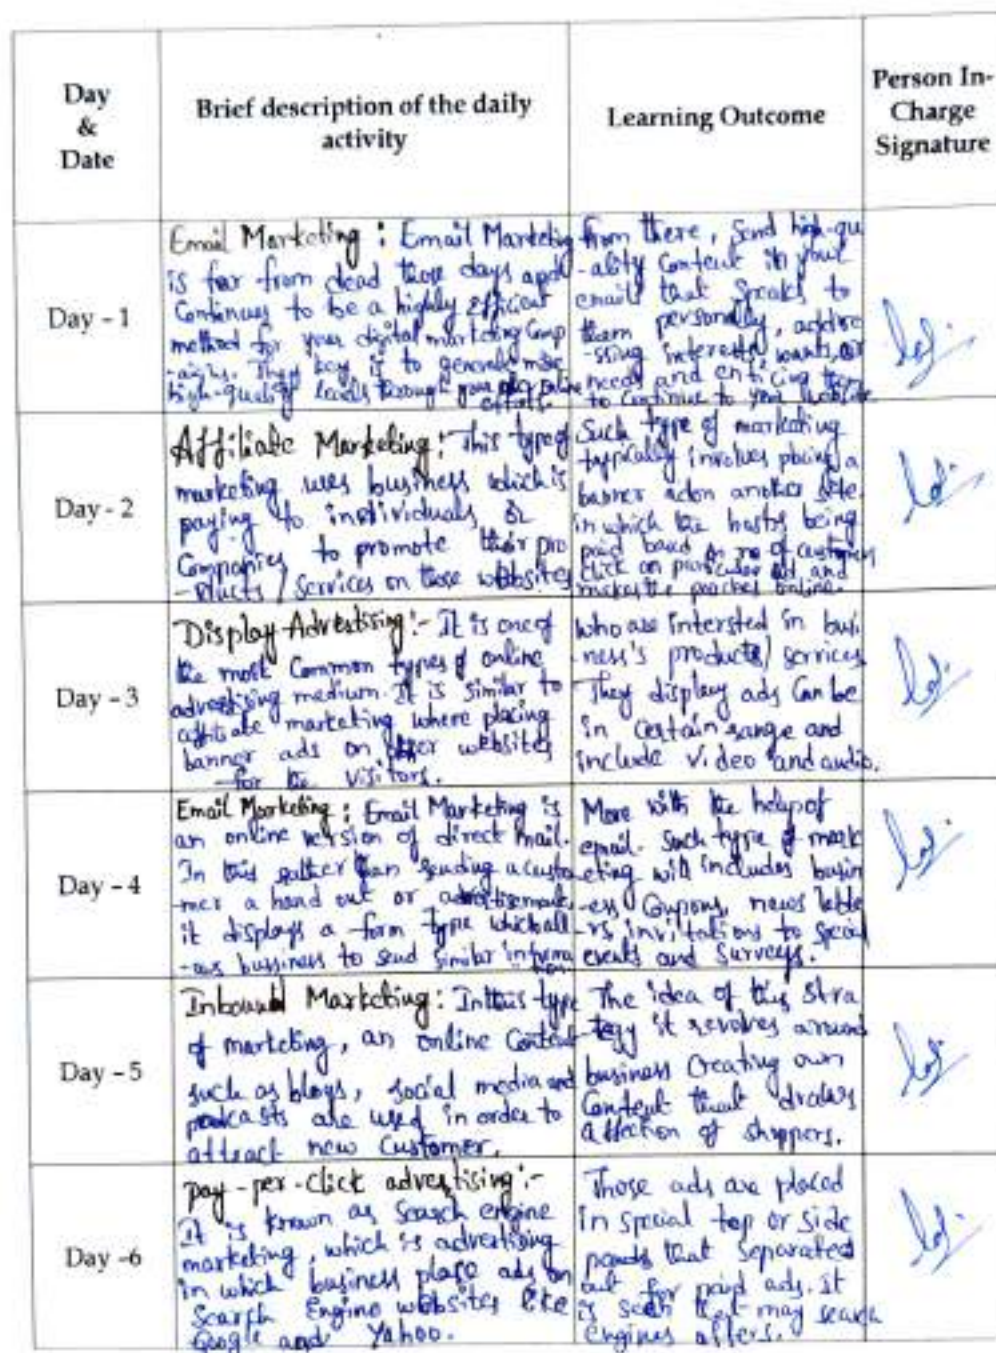 Day
&
Date
Brief description of the daily
activity
Learning Outcome
Person In-
Charge
Signature
Day - 1
Email Marketing : Email Marketing
is far from dead these days and
Continues to be a highly efficient
method for your digital marketing Camp
-aigns. They key is to generate more
high-quality leads through your online
efforts.
From there, Send high-qu
-ality Content in your
emails that speaks to
them personally, addre
-ssing interests, wants, or
needs and enticing them
to Continue to your website
Day - 2
Affiliate Marketing : This type of
marketing uses business which is
paying to individuals or
Companies to promote their pro
-ducts / Services on those websites
Such type of marketing
typically involves placing a
banner ad on another site.
in which the hosts being
paid based on no of customers
click on particular ad and
makes the online.
Day - 3
Display Advertising :- It is one of
the most Common types of online
advertising medium. It is similar to
affiliate marketing where placing
banner ads on other websites
for the visitors.
who are intersted in busi
-ness's products/services
They display ads Can be
in certain range and
include video and audio.
Day - 4
Email Marketing : Email Marketing is
an online version of direct mail.
In this rather than sending a custo
-mer a hand out or
it displays a form type which all
-ows bussiness to send similar informa
More with the help of
email. Such type of mark
-eting will includes busin
-ess Coupons, news lette
-rs, invitations to special
events and surveys.
Day - 5
Inbound Marketing : In this type
of marketing, an online Content
such as blogs, social media and
podcasts are used in order to
attract new Customer.
The idea of this stra
-tegy it revolves around
business Creating own
Content that draws
of shoppers.
Day -6
pay-per-click advertising :-
It is known as search engine
marketing, which is advertising
in which business place ads on
Search Engine websites like
Google and Yahoo.
Those ads are placed
in special top or side
that separated
out for paid ads. it
is that may search
engines offers.